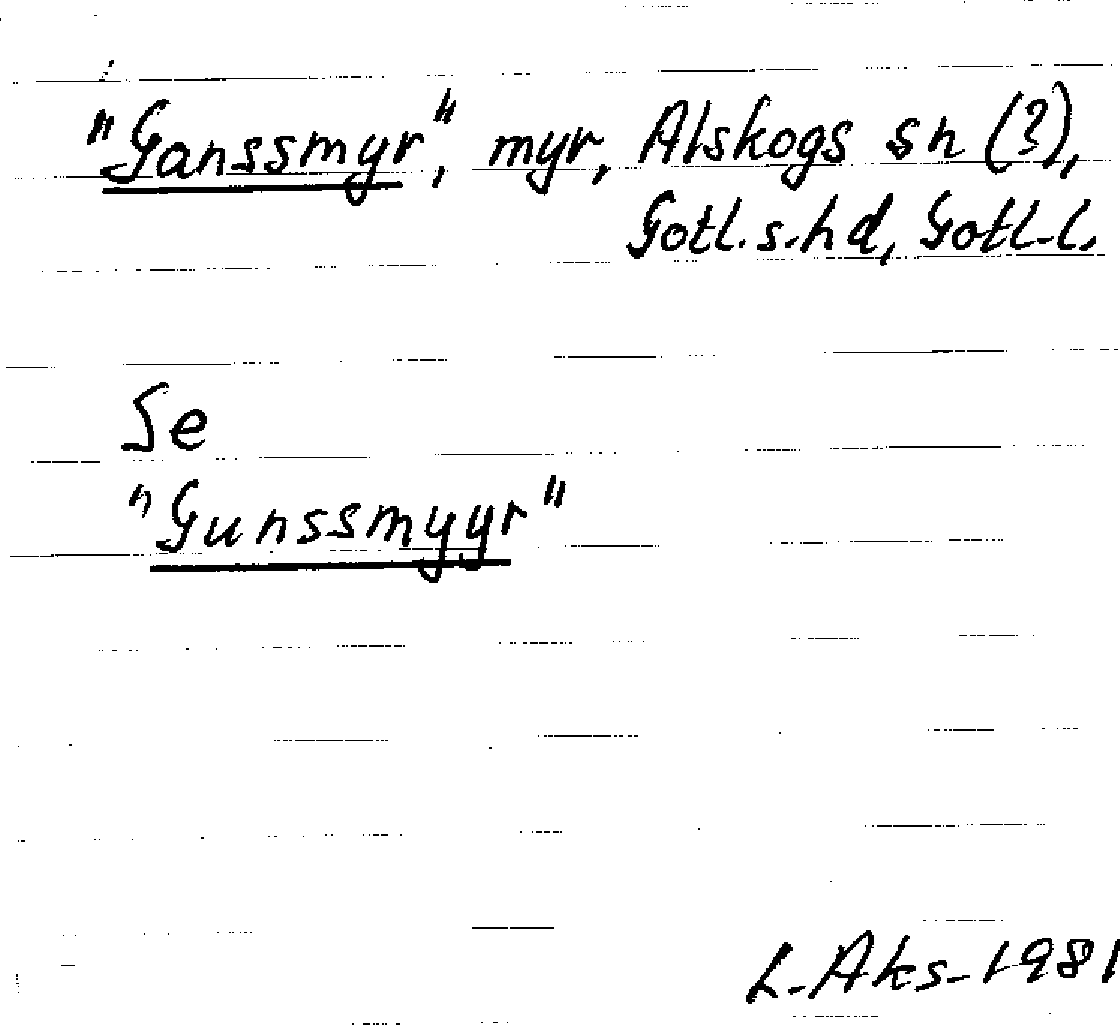 "Ganssmyr", myr, Alskogs sn (?),
Gotl. s. hd, Gotl. l.
Se
"Gunssmyyr"
L. Aks. 1981